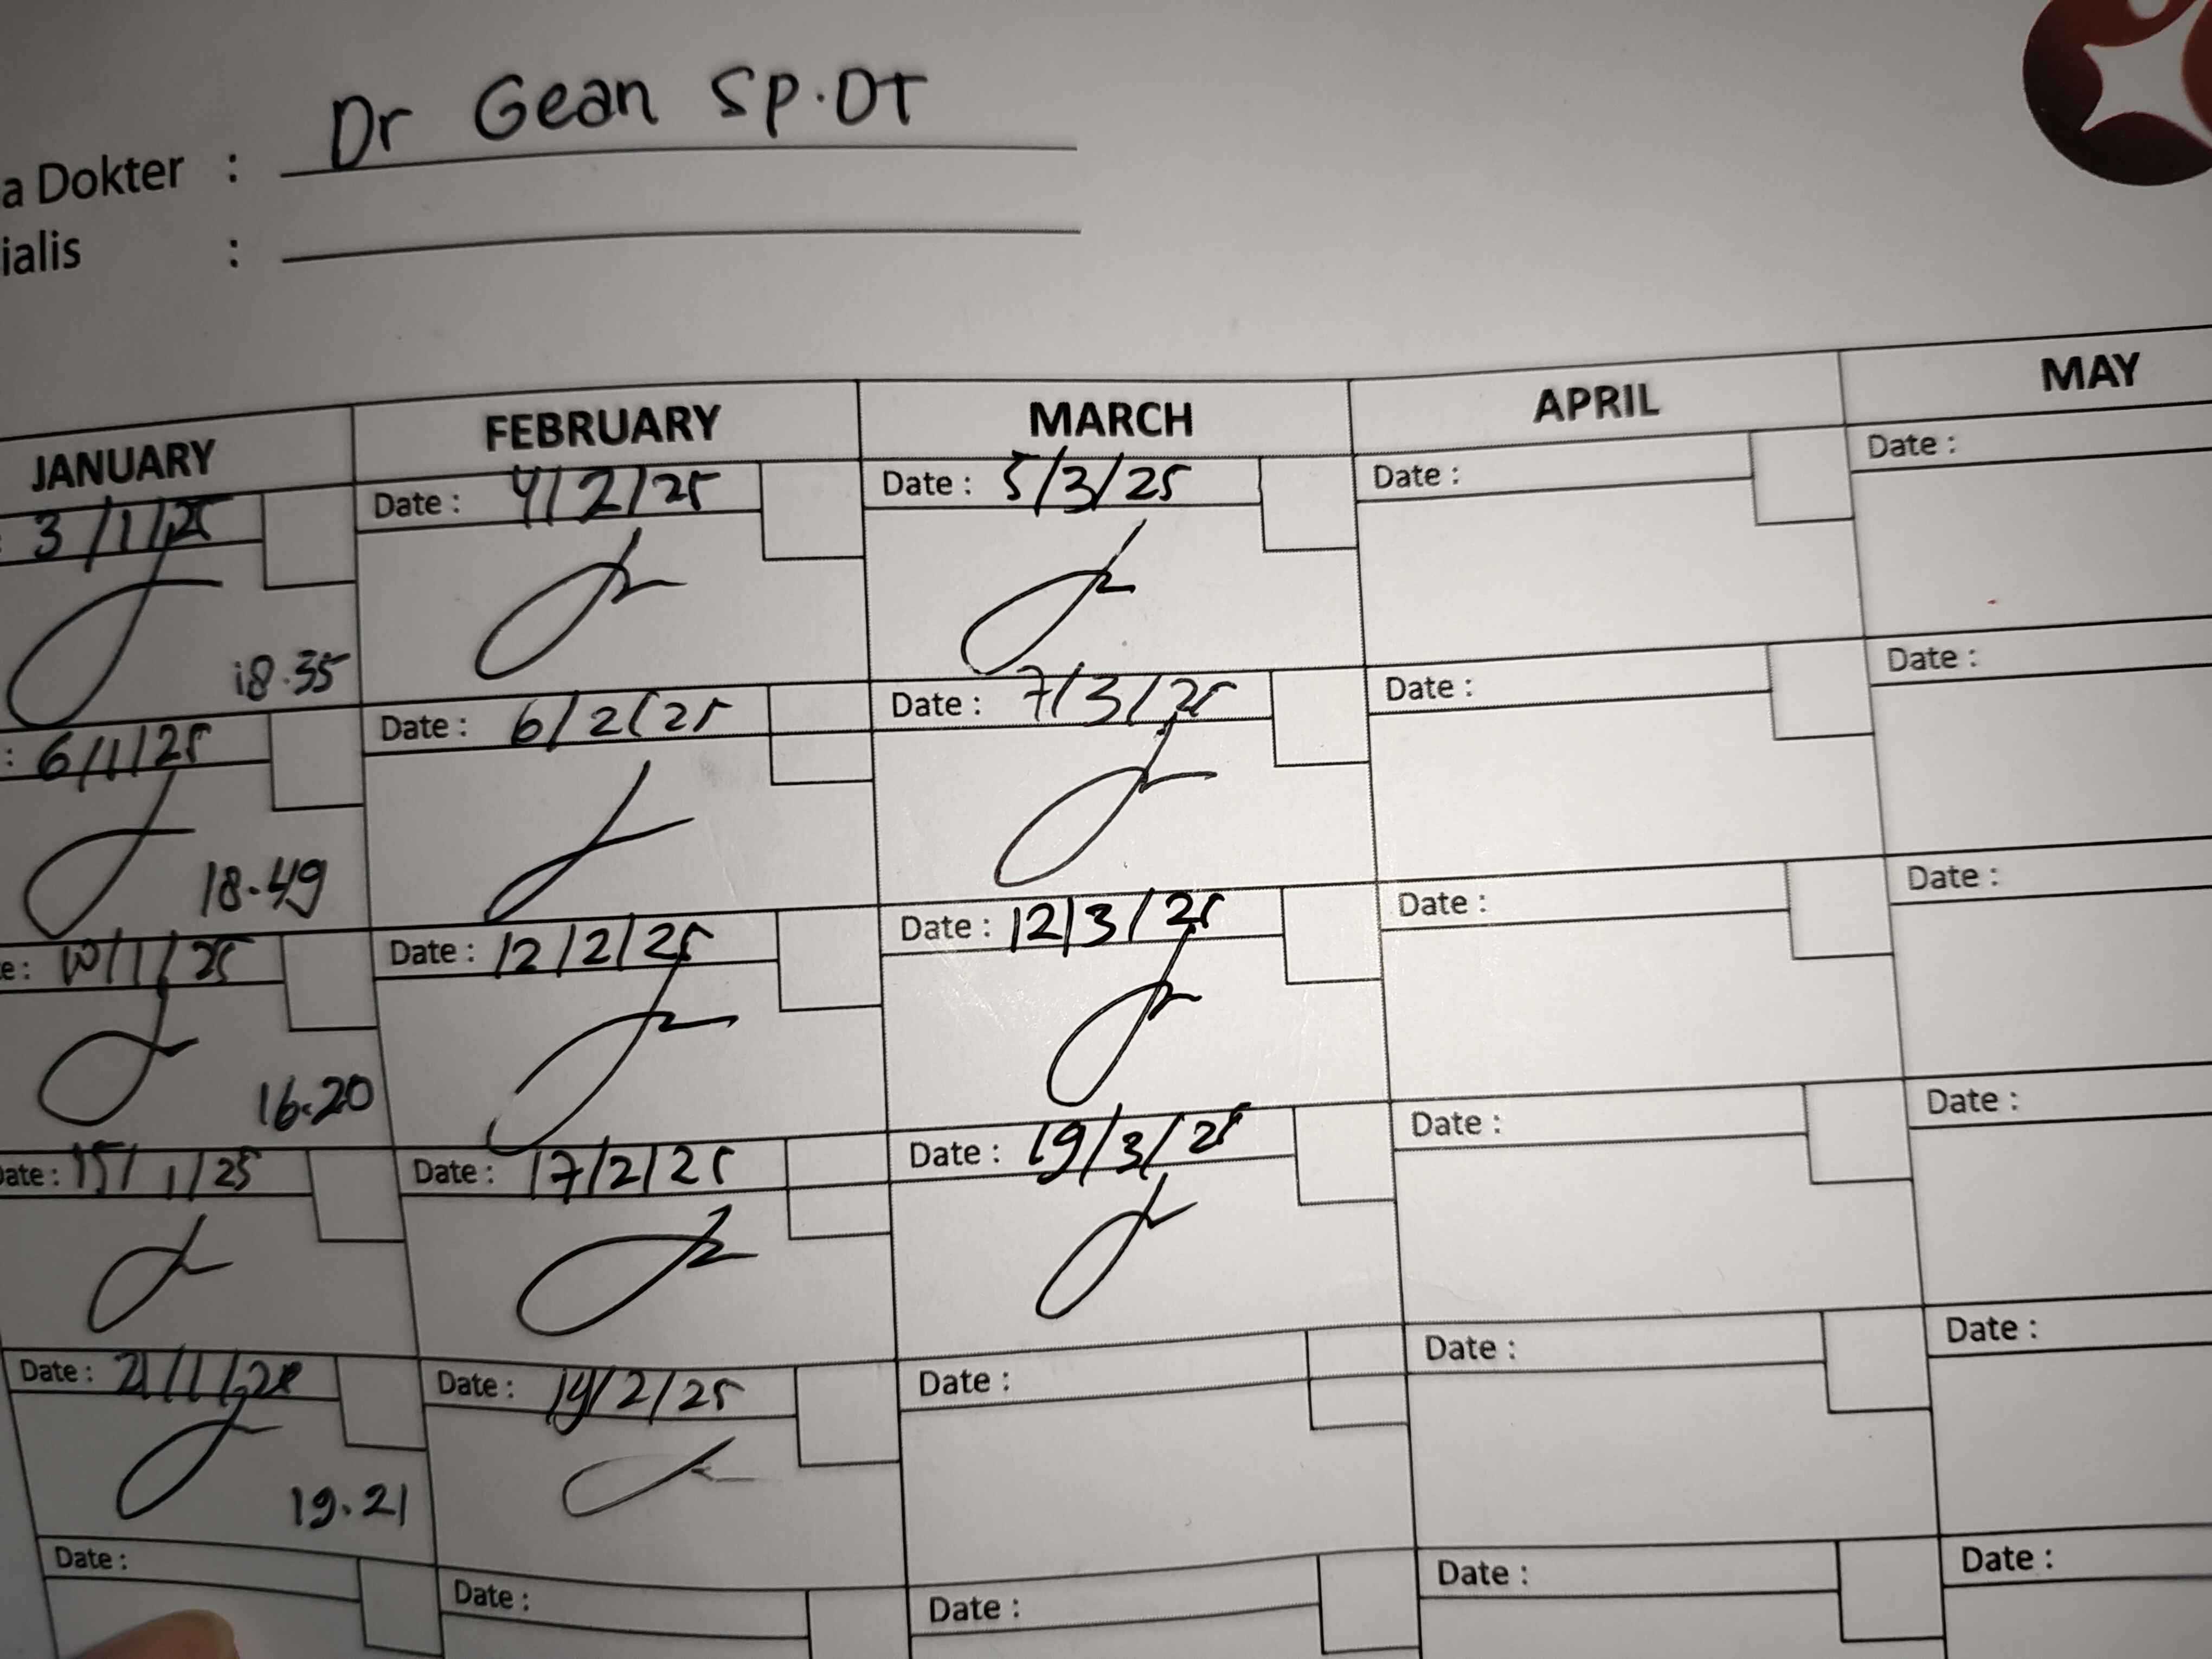 Dr Gean Sp.OT
a Dokter :
ialis :
JANUARY FEBRUARY MARCH APRIL MAY
3/1/25 Date : 4/2/25 Date : 5/3/25 Date : Date :
18.35
: 6/1/25 Date : 6/2/25 Date : 7/3/25 Date : Date :
18.49
e: 10/1/25 Date : 12/2/25 Date : 12/3/25 Date : Date :
16.20
Date : 15/1/25 Date : 17/2/25 Date : 19/3/25 Date : Date :
Date : 21/1/ Date : 19/2/25 Date : Date : Date :
19.21
Date : Date : Date : Date : Date :